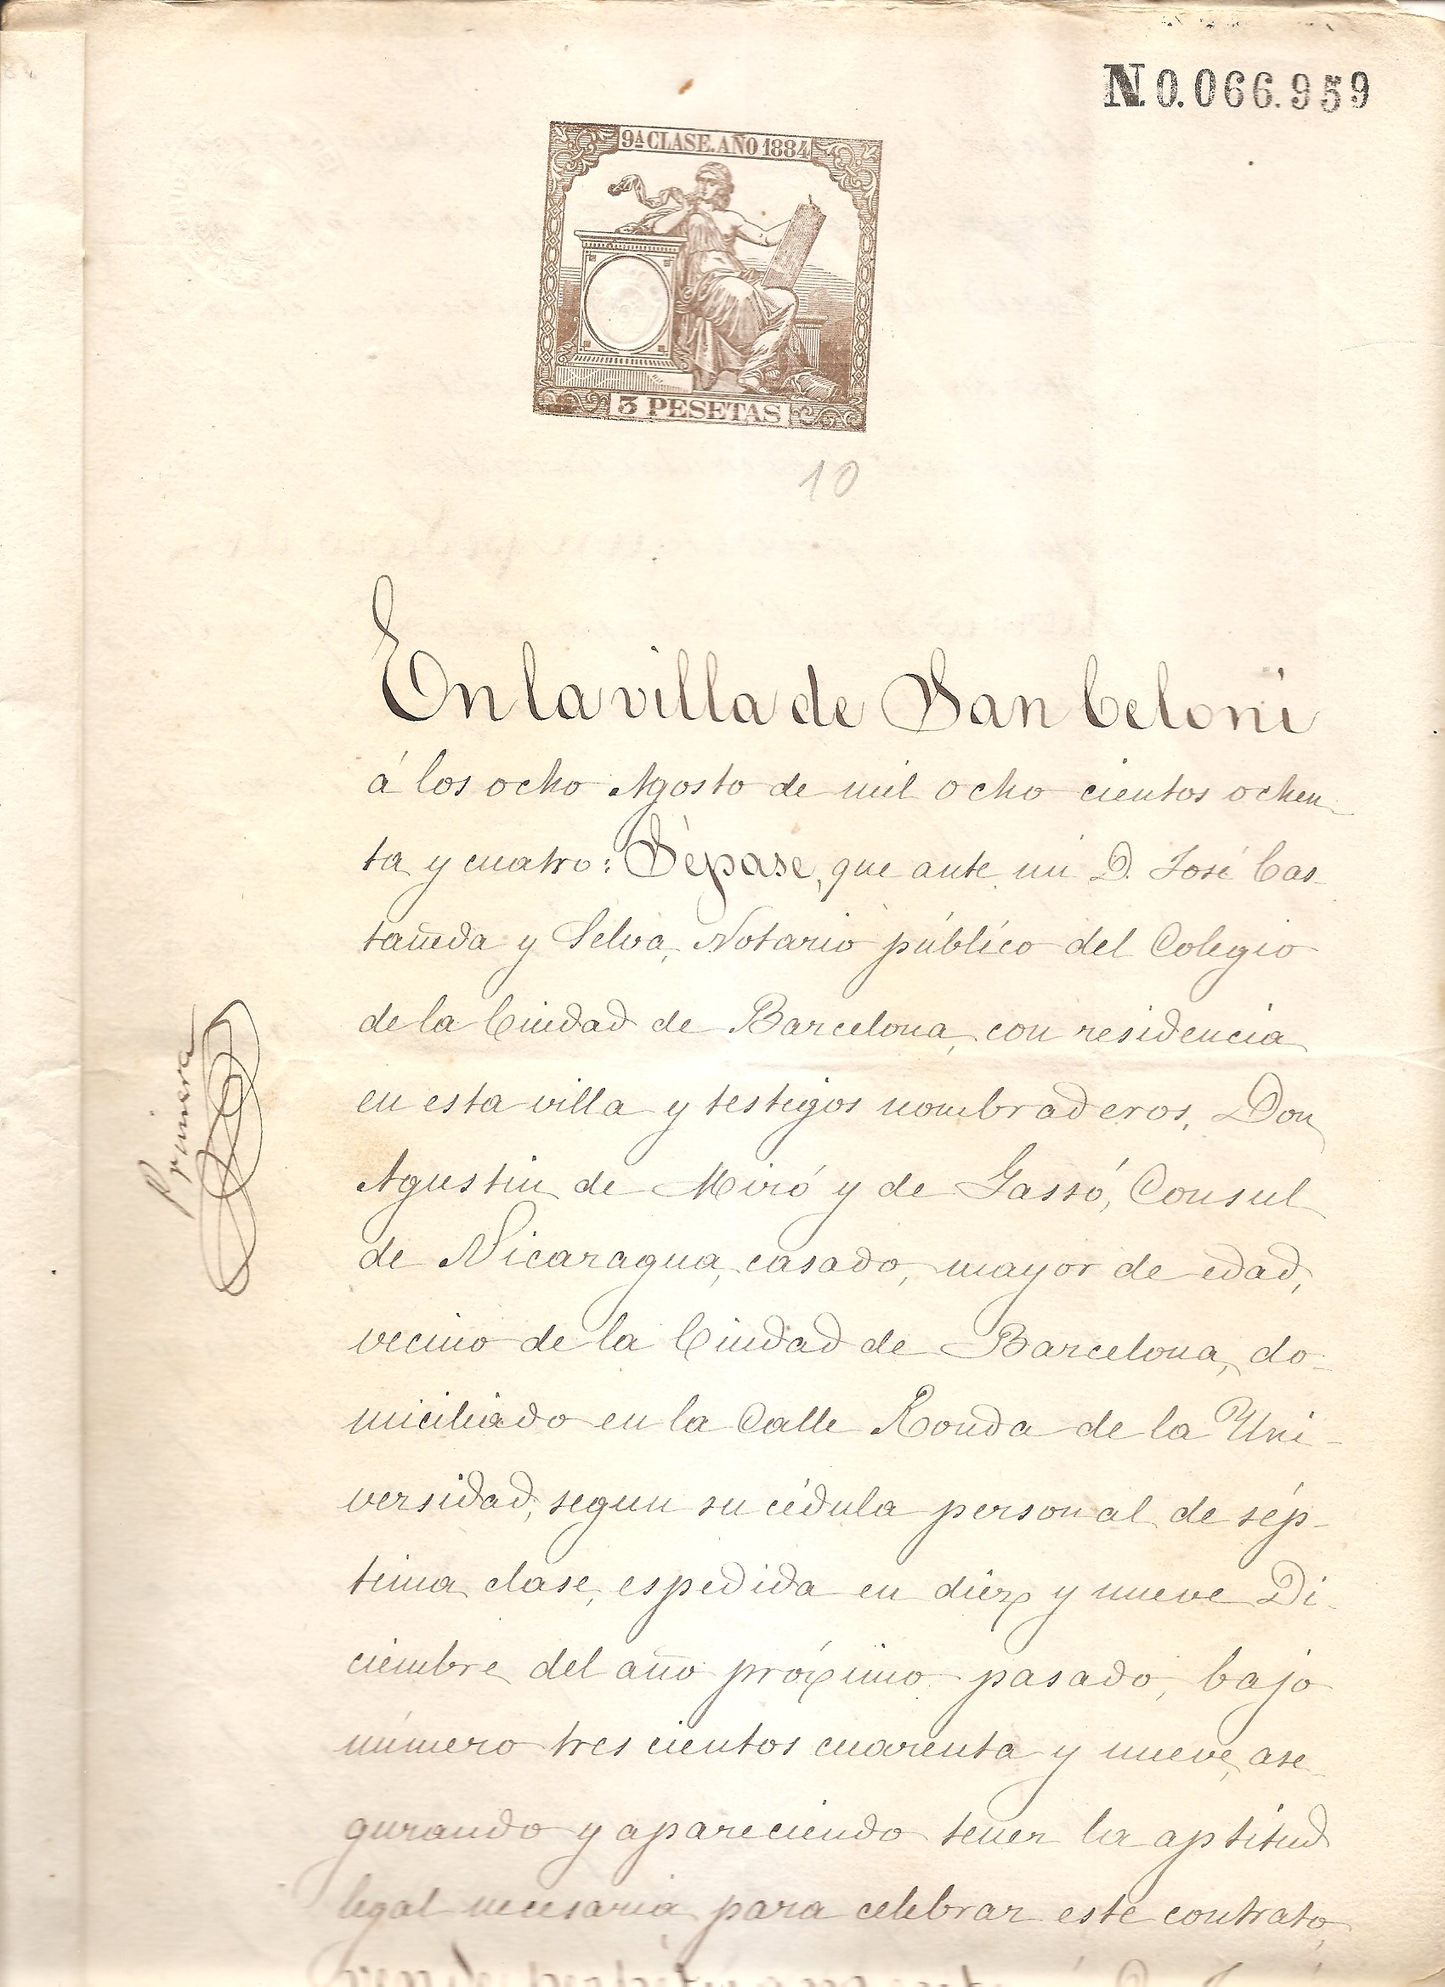 N.0.066.959
9ª CLASE. AÑO 1884
3 PESETAS
10
En la villa de San Celoni
á los ocho Agosto de mil ocho cientos ochen
ta y cuatro: Sépase, que ante mi D. José Cas-
tañeda y Selva, Notario público del Colegio
de la Ciudad de Barcelona, con residencia
en esta villa y testigos nombraderos, Don
Agustin de Miró y de Gassó, Consul
de Nicaragua, casado, mayor de edad,
vecino de la Ciudad de Barcelona, do-
miciliado en la Calle Ronda de la Uni-
versidad, segun su cédula personal de sép-
tima clase, espedida en diez y nueve Di-
ciembre del año próximo pasado, bajo
número tres cientos cuarenta y nueve, ase-
gurando y apareciendo tener la aptitud
legal necesaria para celebrar este contrato,
Primera